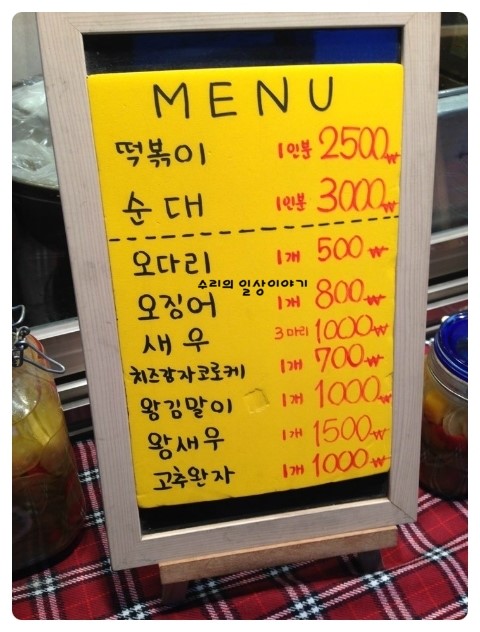 MENU
떡볶이 1인분 2500₩
순대 1인분 3000₩
오다리 1개 500₩
수리의 일상이야기
오징어 1개 800₩
새우 3마리 1000₩
치즈감자코로케 1개 700₩
왕김말이 1개 1000₩
왕새우 1개 1500₩
고추완자 1개 1000₩